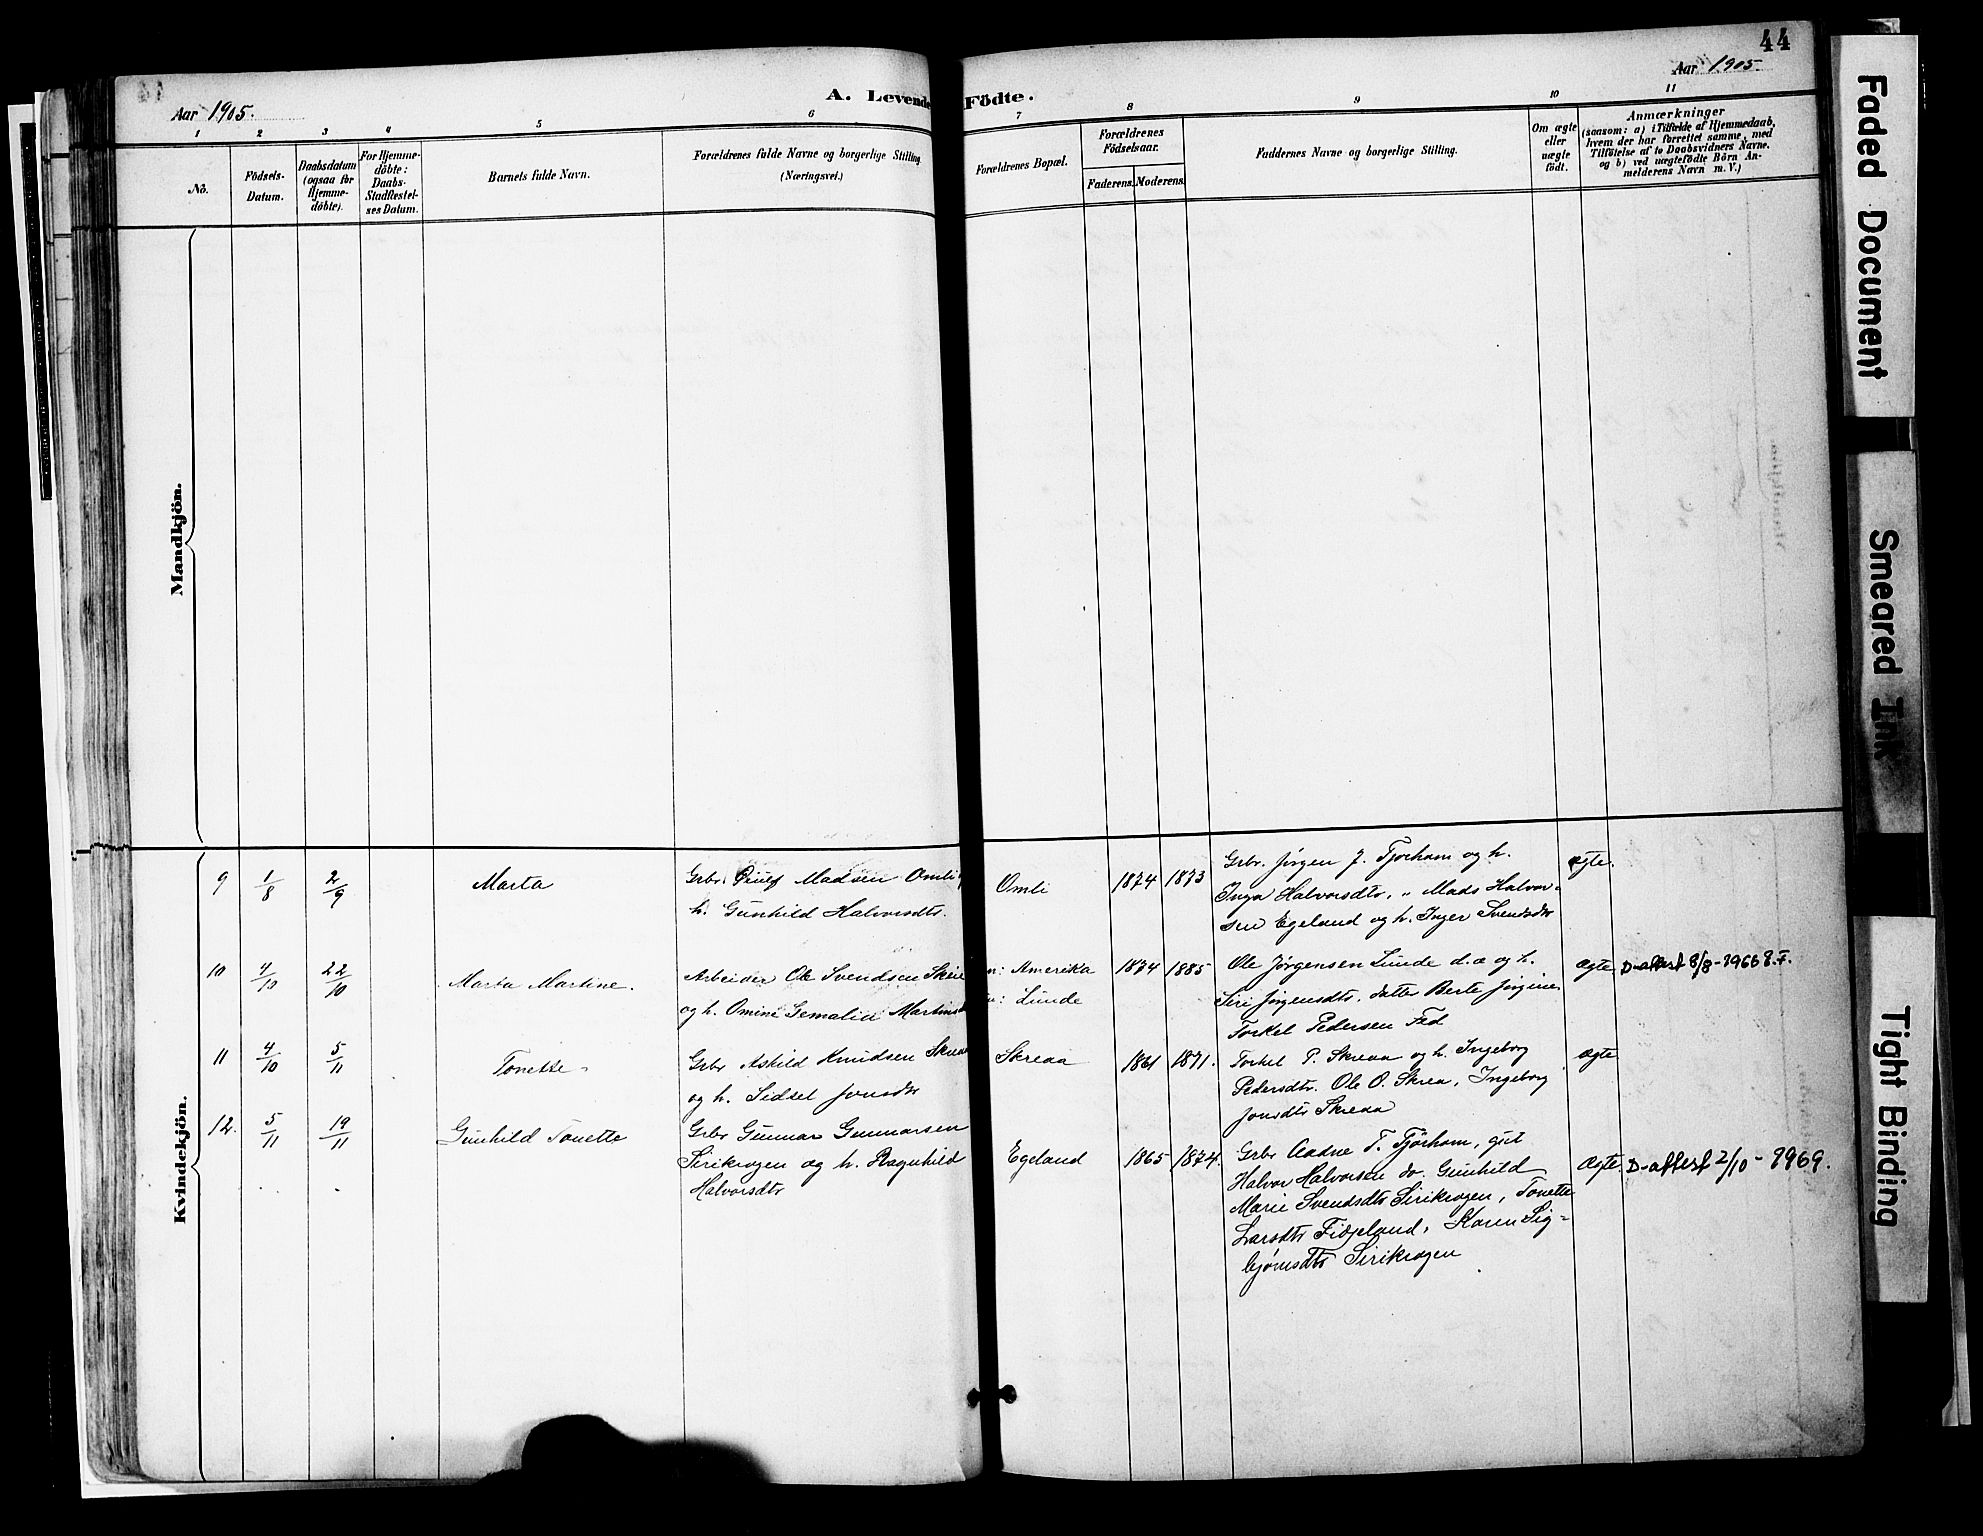 44
Aar 1905.
A. Levende Födte.
Aar 1905.
1 2 3 4 5 6 7 8 9 10 11
No.
Födsels-
Datum.
Daabsdatum
(ogsaa for
Hjemme-
döbte).
For Hjemme-
döbte:
Daabs-
Stadfæstel-
ses Datum.
Barnets fulde Navn.
Forældrenes fulde Navne og borgerlige Stilling.
(Næringsvei.)
Forældrenes Bopæl.
Forældrenes
Födselsaar.
Faderens. Moderens.
Faddernes Navne og borgerlige Stilling.
Om ægte
eller
uægte
födt.
Anmærkninger
(saasom: a) i Tilfælde af Hjemmedaab,
hvem der har forrettet samme, med
Tilföielse af to Daabsvidners Navne.
og b) ved uægtefödte Börn An-
melderens Navn m. V.)
Mandkjön.
Kvindekjön.
9 1/8 2/9 Marta
Grbr. Madsen Omli
h. Gunhild Halvorsdtr.
Omli 1874 1873
Grbr. Jørgen J. Tjorhom og h.
Inga Halvorsdtr, " Mads Halvor-
sen Egeland og h. Inger Svendsdtr
ægte.
10 4/10 22/10 Marta Martine.
Arbeider Ole Svendsen Skrie
og h. Omine Martins
n: Amerika
: Lunde
1874 1885
Ole Jørgensen Lunde d.æ og h.
Siri Jørgensdtr. datter Berte Jørgine
Torkel Pedersen Fed
ægte D-attest 8/8-1966 S.F.
11 4/10 5/11 Tonette
Grbr Askild Knudsen Skreaa
og h. Sidsel Jonsdtr
Skreaa 1861 1871.
Torkel P. Skreaa og h. Ingeborg
Pedersdtr. Ole O. Skrea, Ingeborg
Jonsdtr Skreaa
ægte
12. 5/11 19/11 Gunhild Tonette
Grbr Gunnar Gunnarsen
Sirikrogen og h. Ragnhild
Halvorsdtr
Egeland 1865 1874.
Grbr Aadne T. Tjörhom, gut
Halvor Halvorsen do. Gunhild
Marie Svendsdtr Sirikrogen, Tonette
Larsdtr Fidjeland, Karen Sig-
bjørnsdtr Sirikrogen
Ægte. D-attest 2/10-1969.
Faded Document
Smeared Ink
Tight Binding